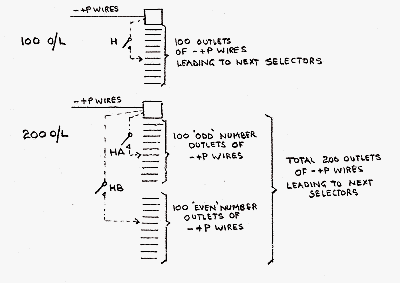 -+P WIRES
100 O/L
H
100 OUTLETS
OF -+P WIRES
LEADING TO NEXT
SELECTORS
-+P WIRES
200 O/L
HA
100 'ODD' NUMBER
OUTLETS OF
-+P WIRES
HB
100 'EVEN' NUMBER
OUTLETS OF
-+P WIRES
TOTAL 200 OUTLETS
OF -+P WIRES
LEADING TO NEXT
SELECTORS